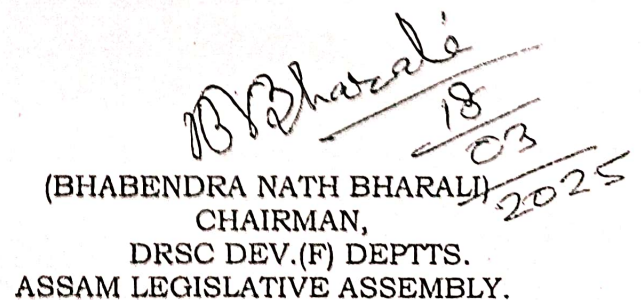 B N Bharali
18
03
2025
(BHABENDRA NATH BHARALI)
CHAIRMAN,
DRSC DEV.(F) DEPTTS.
ASSAM LEGISLATIVE ASSEMBLY.